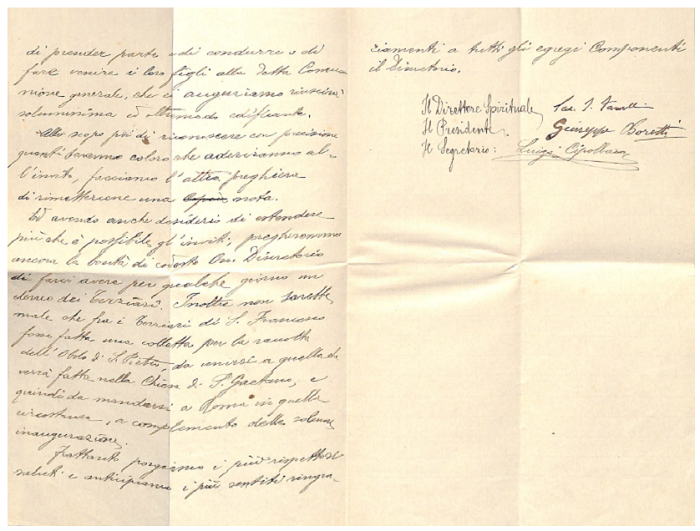 di prender parte e di condurre o di
fare venire i loro figli alla detta Comu-
nione generale, che ci auguriamo riuscirà
solennissima ed oltremodo edificante.
Allo scopo poi di riconoscere con precisione
quanti saranno coloro che aderiranno al-
l'invito, facciamo l'altra preghiera
di rimettercene una nota.
Ed avendo anche desiderio di estendere
più che è possibile gl'inviti, pregheremmo
ancora la bontà di codesto On. Direttorio
di farci avere per qualche giorno un
elenco dei Terziari. Inoltre non sarebbe
male che fra i Terziari di S. Francesco
fosse fatta una colletta per la raccolta
dell'Obolo di S. Pietro, da unirsi a quella che
verrà fatta nella Chiesa di S. Gaetano, e
quindi da mandarsi a Roma in quella
circostanza, a complemento della solenne
inaugurazione.
Frattanto porgiamo i più rispettosi
saluti e anticipiamo i più sentiti ringra-
ziamenti a tutti gli egregi Componenti
il Direttorio.
Il Direttore Spirituale, Sac.
Il Presidente. Giuseppe Boretti
Il Segretario: Luigi Cipollara